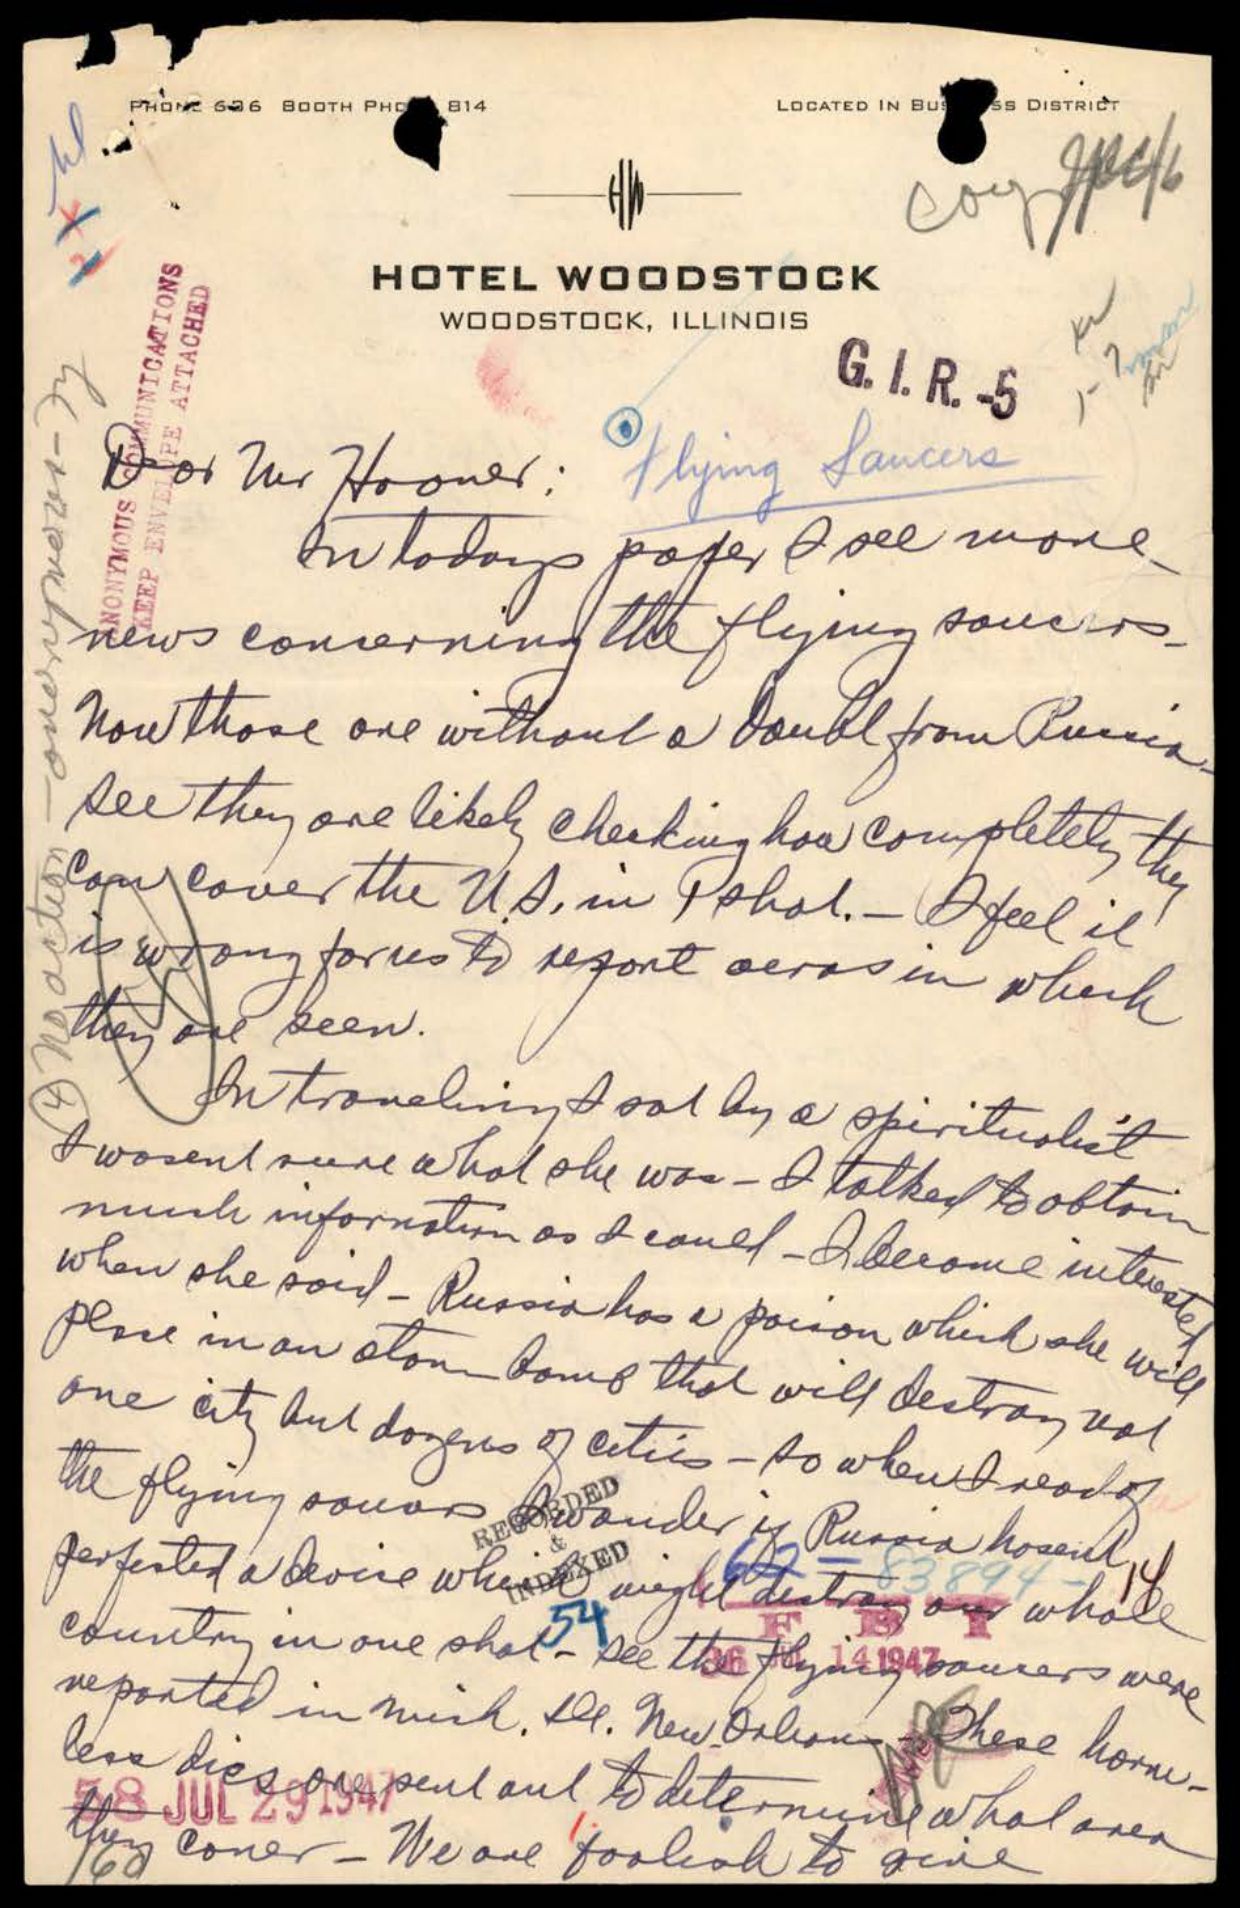 PHONE 636 BOOTH PHONE 814
LOCATED IN BUSINESS DISTRICT
HW
HOTEL WOODSTOCK
WOODSTOCK, ILLINOIS
copy
G. I. R. -5
ANONYMOUS COMMUNICATIONS
KEEP ENVELOPE ATTACHED
Flying Saucers
Dear Mr Hoover:
In todays paper I see more
news concerning the flying saucers -
Now those are without a doubt from Russia -
see they are likely checking how completely they
can cover the U.S. in 1 shot. - I feel it
is wrong for us to report areas in which
they are seen.
In traveling I sat by a spiritualist
I wasent sure what she was - I talked to obtain
much information as I could - I became interested
when she said - Russia has a poison which she will
place in an atom bomb that will destroy not
one city but dozens of cities - so when I read of
the flying saucers I wonder if Russia hasent
perfected a devise which might destroy our whole
country in one shot - see the flying saucers were
reported in Mich. Ill. New Orleans - These harm-
less discs are sent out to determine what area
they cover - We are foolish to give
(4) No action -
RECORDED
&
INDEXED
54
62-83894-14
F B I
36 JUL 14 1947
58 JUL 29 1947